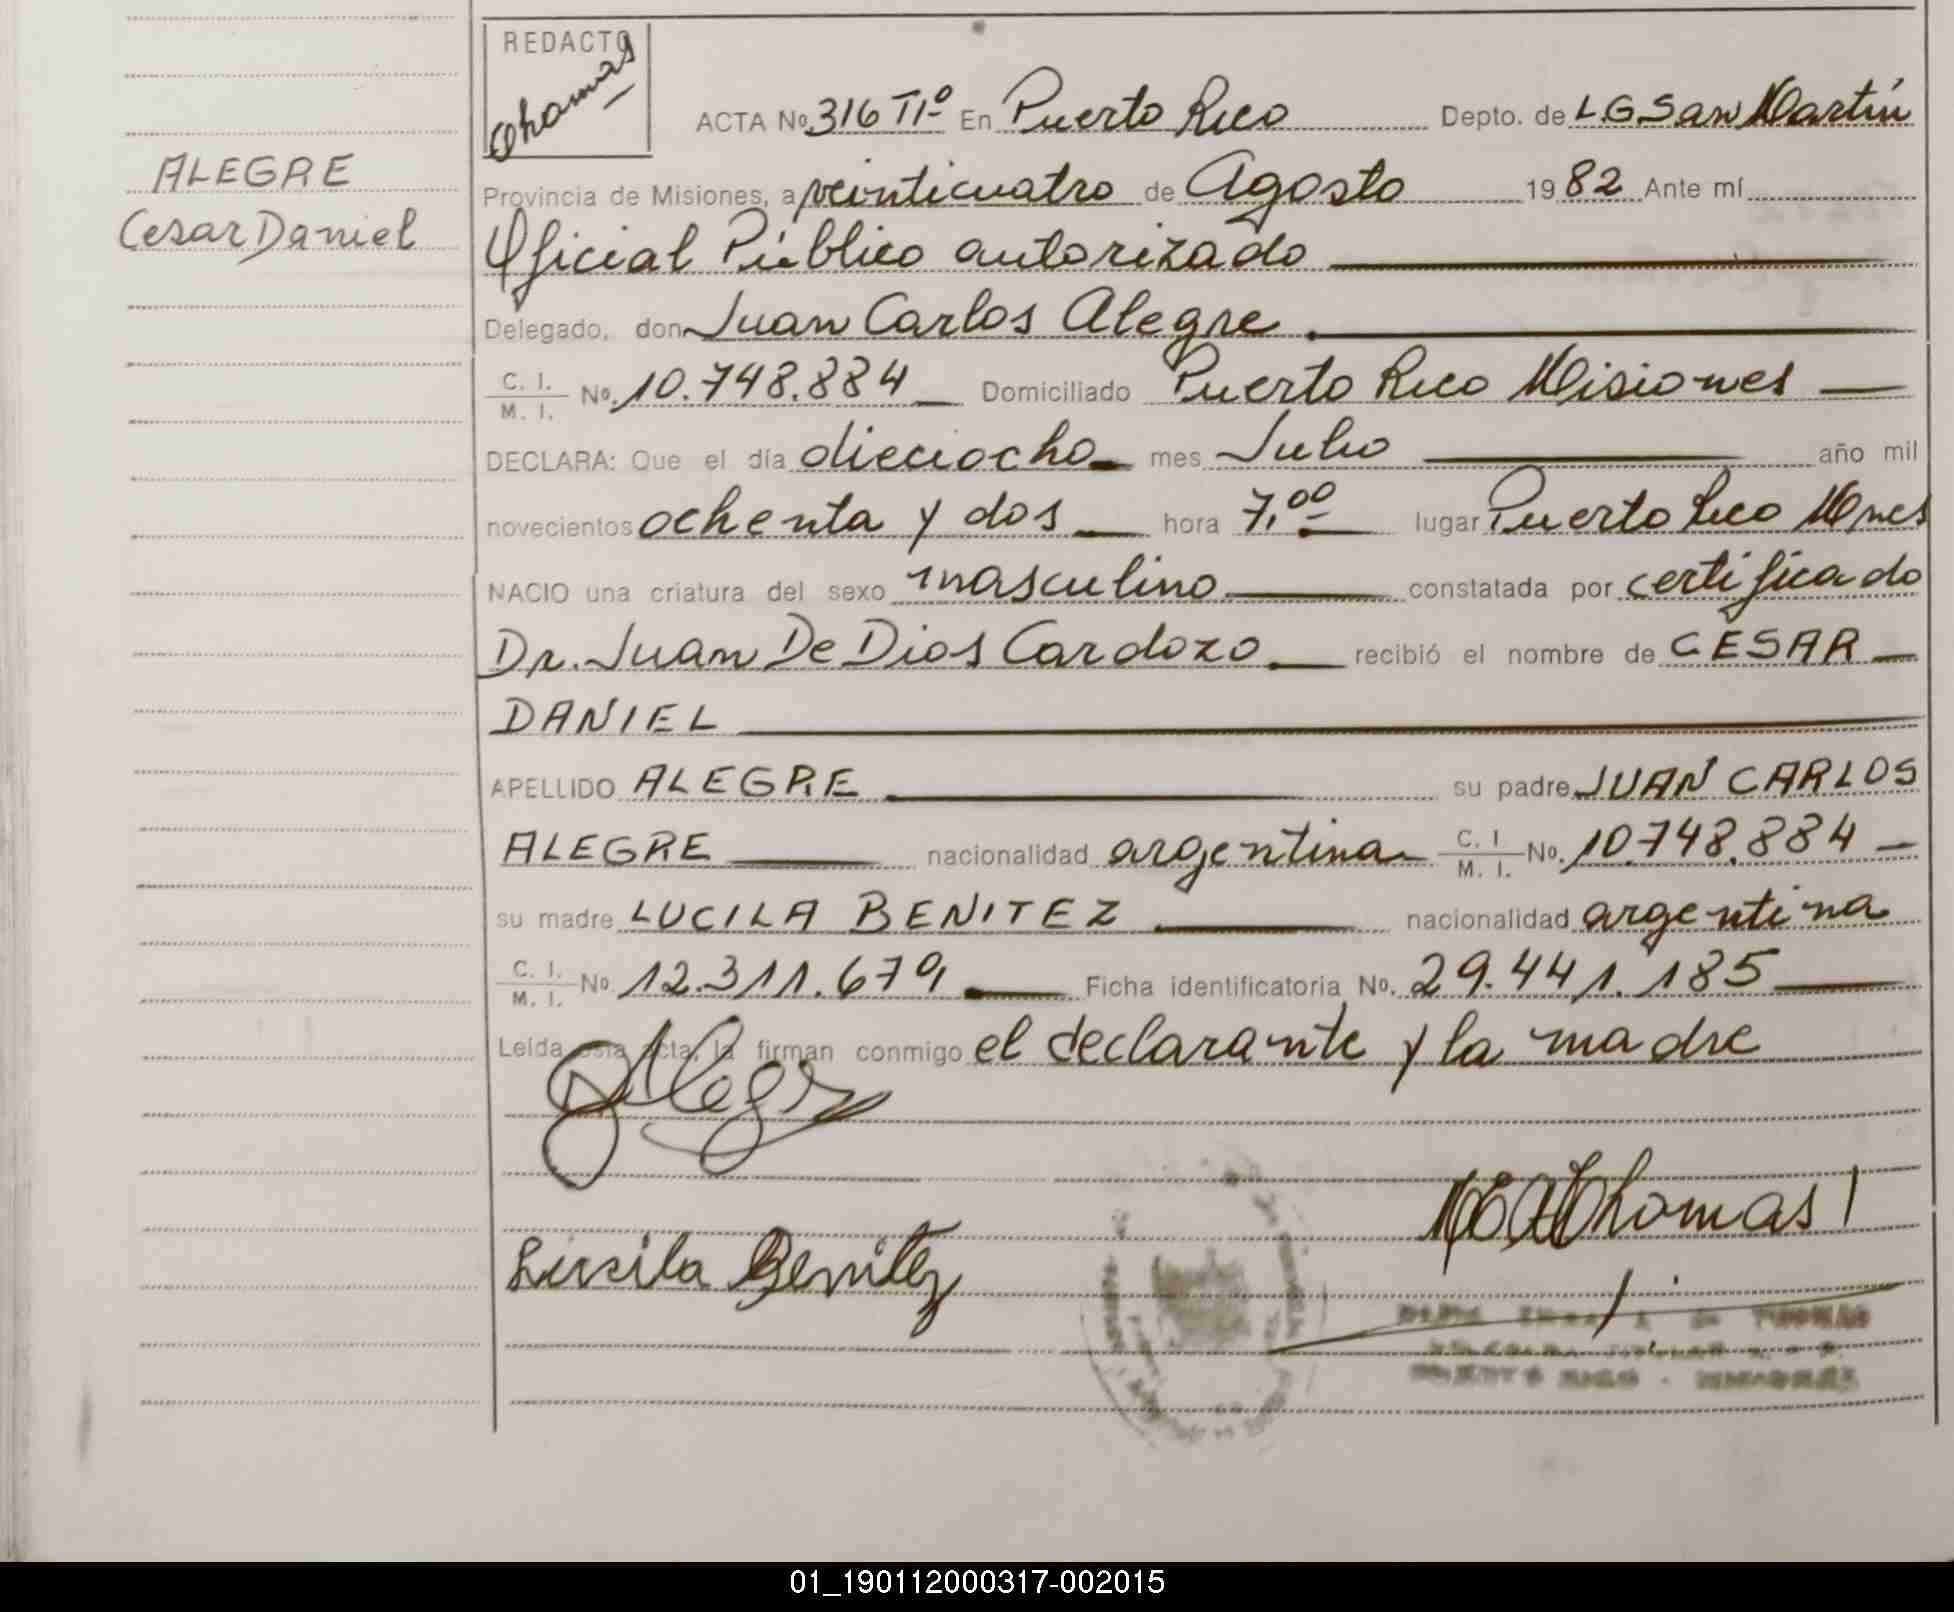 REDACTO
Thomas
ACTA No. 316 TIº En Puerto Rico Depto. de L G San Martín
ALEGRE
Cesar Daniel
Provincia de Misiones, a veinticuatro de Agosto 1982 Ante mí
Oficial Público autorizado
Delegado, don Juan Carlos Alegre
C. I. / M. I. No. 10.748.884 Domiciliado Puerto Rico Misiones
DECLARA: Que el día dieciocho mes Julio año mil
novecientos ochenta y dos hora 7,00 lugar Puerto Rico Mnes
NACIO una criatura del sexo masculino constatada por certificado
Dr. Juan De Dios Cardozo recibió el nombre de CESAR
DANIEL
APELLIDO ALEGRE su padre JUAN CARLOS
ALEGRE nacionalidad argentina C. I. / M. I. No. 10.748.884
su madre LUCILA BENITEZ nacionalidad argentina
C. I. / M. I. No. 12.311.679 Ficha identificatoria No. 29.441.185
Leída esta acta, la firman conmigo el declarante y la madre
Alegre
Thomas
Lucila Benitez
PUERTO RICO - MISIONES
01_190112000317-002015